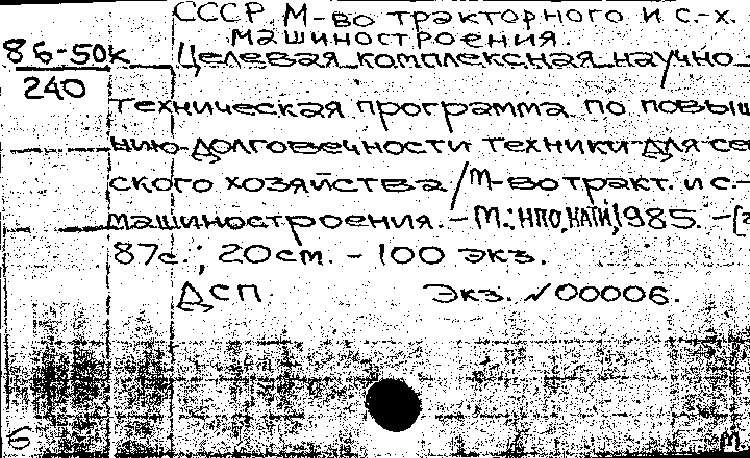 СССР М-во тракторного и с.-х.
машиностроения.
86-50к Целевая комплексная научно-
240
техническая программа по повыш
нию долговечности техники для се
ского хозяйства / М-во тракт. и с.-
машиностроения. – М.: НПО НАТИ, 1985. –
87с.; 20см. – 100 экз.
ДСП Экз. №00006.
Б м.